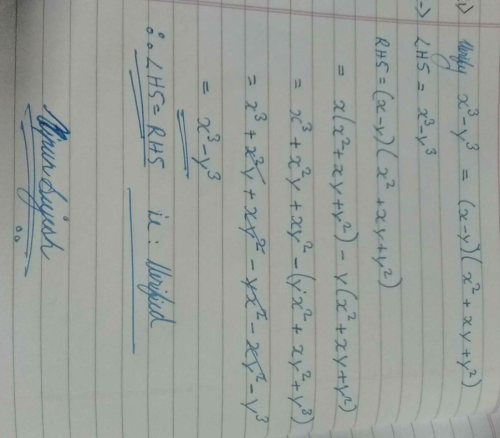 1) Verify x³-y³ = (x-y)(x²+xy+y²)
→) LHS = x³-y³
RHS = (x-y)(x²+xy+y²)
= x(x²+xy+y²) - y(x²+xy+y²)
= x³+x²y+xy² - (yx²+xy²+y³)
= x³+x²y+xy² - yx² - xy² - y³
= x³-y³
∴ LHS = RHS ie: Verified